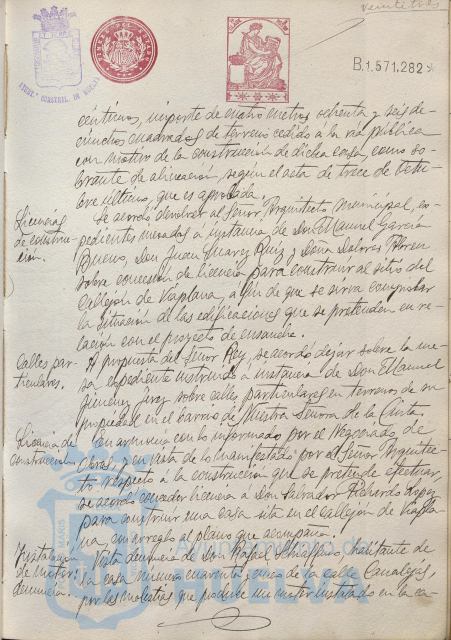 veintitrés
B.1.571.282
céntimos, importe de cuatro metros ochenta y seis de-
címetros cuadrados de terreno cedido a la vía pública
con motivo de la construcción de dicha casa, como so-
brante de alineación, según el acta de trece de Octu-
bre último, que es aprobada.
Licencias de construcción.
Se acordó devolver al Señor Arquitecto Municipal, ex-
pedientes incoados a instancia de Don Manuel García
Bueno, Don Juan Suarez Ruiz y Doña Dolores
sobre concesión de licencia para construir al sitio del
Callejón de Viaplana, a fin de que se sirva comprobar
la situación de las edificaciones que se pretenden en re-
lación con el proyecto de ensanche.
Calles par-
ticulares.
A propuesta del Señor Rey, se acordó dejar sobre la me-
sa expediente instruido a instancia de Don Manuel
Jimenez sobre calles particulares en terrenos de su
propiedad en el barrio de Nuestra Señora de la Cinta.
Licencia de
construcción
En armonía con lo informado por el Negociado de
Obras, y en vista de lo manifestado por el Señor Arquitec-
to respecto a la construcción que se pretende efectuar,
se acordó conceder licencia a Don Salvador Pichardo Lopez
para construir una casa sita en el Callejón de Viapla-
na, con arreglo al plano que acompaña.
Instalación
de motor:
denuncia.
Vista denuncia de Don Rafael habitante de
la casa número cuarenta y cinco de la calle Canalejas,
por las molestias que produce un motor instalado en la ca-